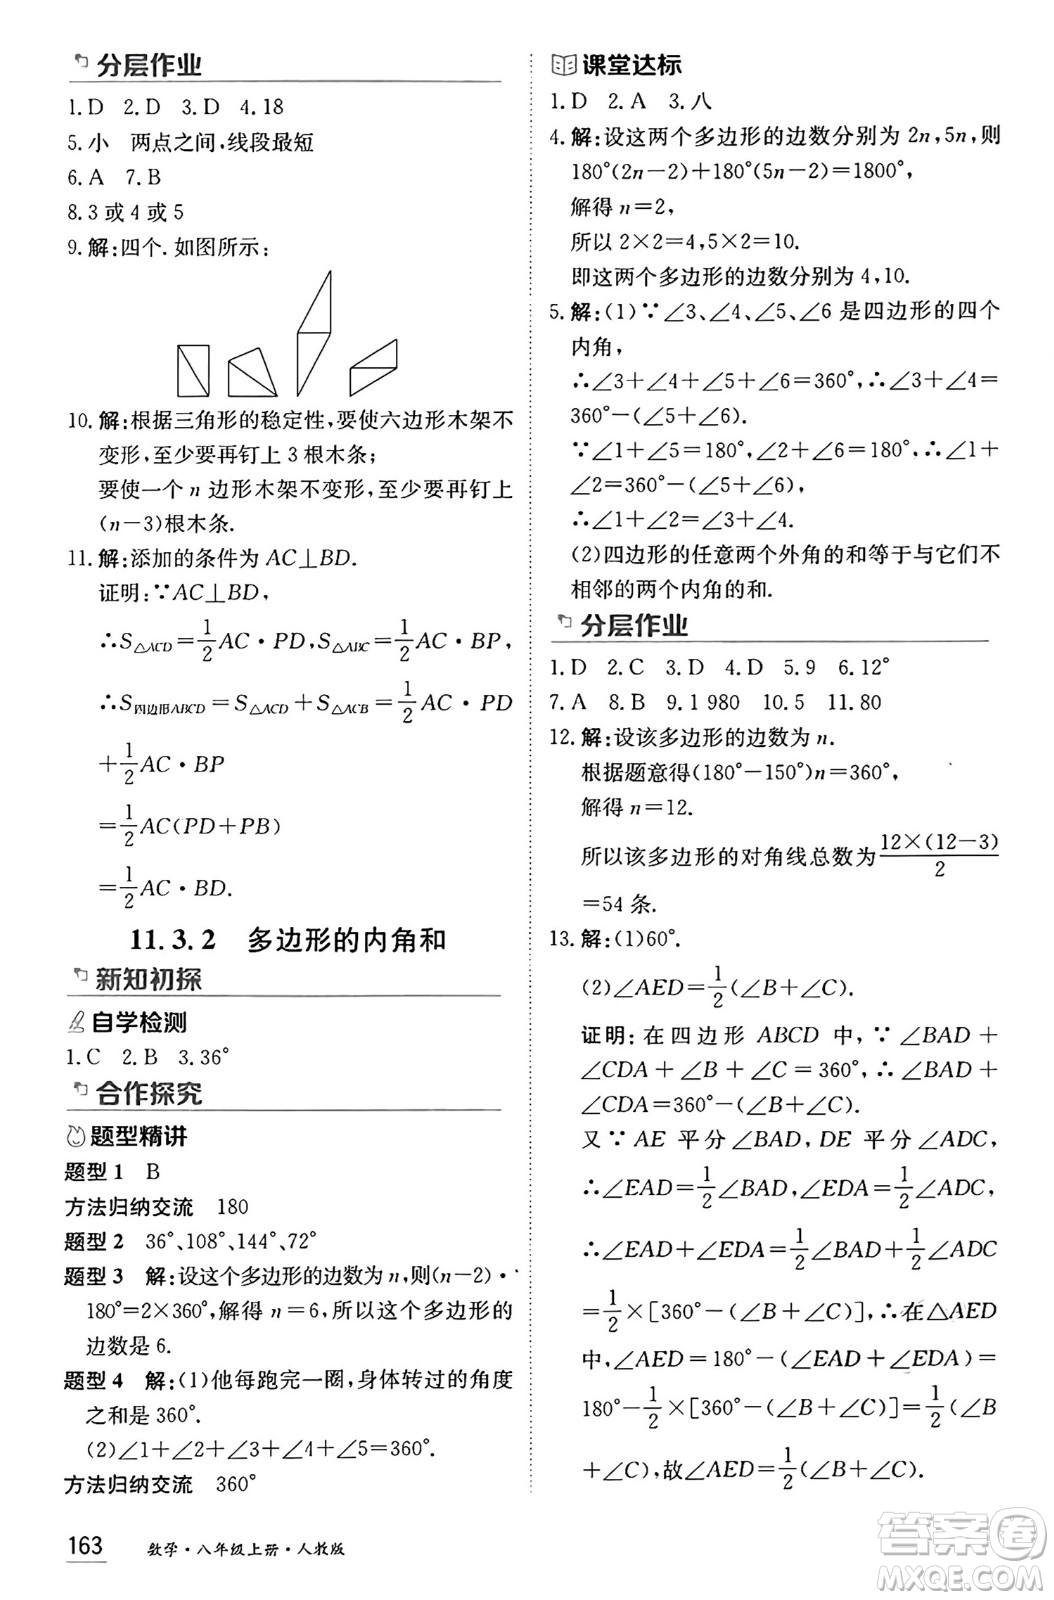 分层作业
1.D 2.D 3.D 4.18
5.小 两点之间,线段最短
6.A 7.B
8.3 或 4 或 5
9.解:四个.如图所示:
10.解:根据三角形的稳定性,要使六边形木架不
变形,至少要再钉上 3 根木条;
要使一个 n 边形木架不变形,至少要再钉上
(n-3)根木条.
11.解:添加的条件为 AC⊥BD.
证明:∵AC⊥BD,
∴S△ACD=1/2AC·PD,S△ABC=1/2AC·BP,
∴S四边形ABCD=S△ACD+S△ACB=1/2AC·PD
+1/2AC·BP
=1/2AC(PD+PB)
=1/2AC·BD.
11.3.2 多边形的内角和
新知初探
自学检测
1.C 2.B 3.36°
合作探究
题型精讲
题型 1 B
方法归纳交流 180
题型 2 36°、108°、144°、72°
题型 3 解:设这个多边形的边数为 n,则(n-2)·
180°=2×360°,解得 n=6,所以这个多边形的
边数是 6.
题型 4 解:(1)他每跑完一圈,身体转过的角度
之和是 360°.
(2)∠1+∠2+∠3+∠4+∠5=360°.
方法归纳交流 360°
163 数学·八年级上册·人教版
课堂达标
1.D 2.A 3.八
4.解:设这两个多边形的边数分别为 2n,5n,则
180°(2n-2)+180°(5n-2)=1800°,
解得 n=2,
所以 2×2=4,5×2=10.
即这两个多边形的边数分别为 4,10.
5.解:(1)∵∠3、∠4、∠5、∠6 是四边形的四个
内角,
∴∠3+∠4+∠5+∠6=360°,∴∠3+∠4=
360°-(∠5+∠6).
∵∠1+∠5=180°,∠2+∠6=180°,∴∠1+
∠2=360°-(∠5+∠6),
∴∠1+∠2=∠3+∠4.
(2)四边形的任意两个外角的和等于与它们不
相邻的两个内角的和.
分层作业
1.D 2.C 3.D 4.D 5.9 6.12°
7.A 8.B 9.1 980 10.5 11.80
12.解:设该多边形的边数为 n.
根据题意得(180°-150°)n=360°,
解得 n=12.
所以该多边形的对角线总数为12×(12-3)/2
=54 条.
13.解:(1)60°.
(2)∠AED=1/2(∠B+∠C).
证明:在四边形 ABCD 中,∵∠BAD+
∠CDA+∠B+∠C=360°,∴∠BAD+
∠CDA=360°-(∠B+∠C).
又∵AE 平分∠BAD,DE 平分∠ADC,
∴∠EAD=1/2∠BAD,∠EDA=1/2∠ADC,
∴∠EAD+∠EDA=1/2∠BAD+1/2∠ADC
=1/2×[360°-(∠B+∠C)],∴在△AED
中,∠AED=180°-(∠EAD+∠EDA)=
180°-1/2×[360°-(∠B+∠C)]=1/2(∠B
+∠C),故∠AED=1/2(∠B+∠C).
答案圈
MXQE.COM